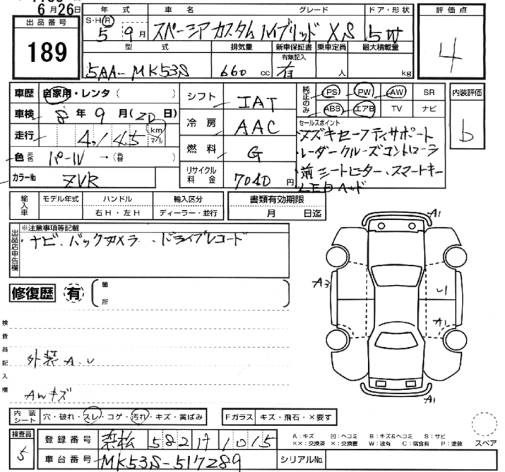 6月26日
出品番号 189
S・H・R 年式 車名 グレード ドア・形状 評価点
5年9月 スペーシアカスタムハイブリッド XS 5W 4
型式 排気量 新車保証書 有無記入 乗車定員 最大積載量
5AA-MK53S 660cc 有 人 kg
車歴 自家用・レンタ( )
車検 8年9月(20日)
走行 4,145 km マイル
色 パール → ( 替)
カラーNo ZVR
シフト IAT
冷房 AAC
燃料 G
リサイクル料金 7040円
純正品のみ PS PW AW SR
ABS エアB TV ナビ
内装評価 b
セールスポイント
スズキセーフティサポート
レーダークルーズコントローラ
前シートヒーター・スマートキー
LEDヘッド
輸入車 モデル年式 ハンドル 輸入区分 書類有効期限
年 右H・左H ディーラー・並行 月 日迄
出品店申告欄 ※注意事項等記載
ナビ、バックカメラ、ドライブレコード
修復歴 有 箇所
検査員記入欄
外装A.U
AWキズ
A1
A3
U1
A1
A1
スペア
内装シート 穴・破れ・スレ・コゲ・汚れ・キズ・黄ばみ
Fガラス キズ・飛石・×要す
検査員 5
登録番号 582 1015
車台番号 MK53S-517289
シリアルNo.
A:キズ U:ヘコミ B:キズ&ヘコミ S:サビ
××:交換済 ×:交換要 W:波有 C:腐食有 P:塗装